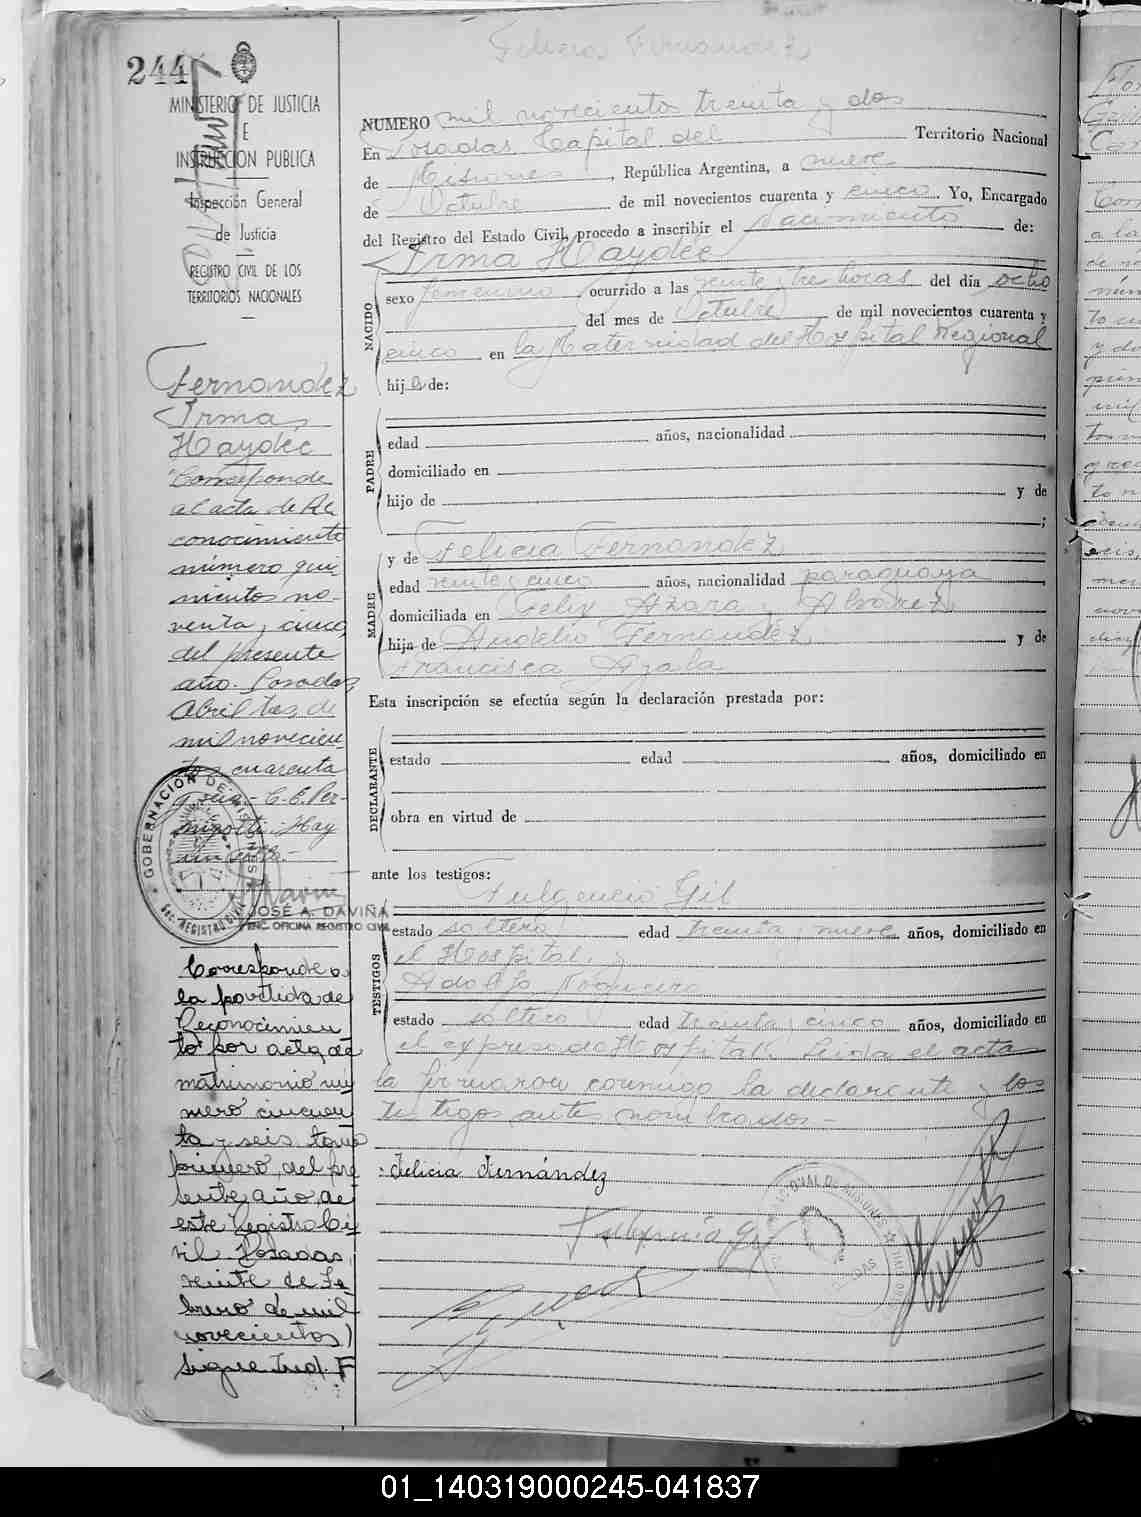 244
MINISTERIO DE JUSTICIA
E
INSTRUCCION PUBLICA
Inspección General
de Justicia
REGISTRO CIVIL DE LOS
TERRITORIOS NACIONALES
Fernandez
Irma
Haydée
Corresponde
al acta de Re
conocimiento
número qui
nientos no-
venta y cinco
del presente
año. Posadas
Abril tres de
mil novecien
tos cuarenta
GOBERNACIÓN DE MISIONES
SEC. REGISTRO CIVIL
JOSÉ A. DAVIÑA
ENC. OFICINA REGISTRO CIVIL
Corresponde a
la partida de
Reconocimien
to por acta de
matrimonio nú
mero cincuen
ta y seis tomo
primero del pre
sente año de
este Registro Ci
vil Posadas,
veinte de Fe
brero de mil
novecientos)
Sigue Ind. F
Felicia Fernandez
NUMERO mil novecientos treinta y dos
En Posadas Capital del Territorio Nacional
de Misiones, República Argentina, a nueve
de Octubre de mil novecientos cuarenta y cinco. Yo, Encargado
del Registro del Estado Civil, procedo a inscribir el Nacimiento de:
Irma Haydée
NACIDO
sexo femenino, ocurrido a las veinte y tres horas del día ocho
del mes de Octubre de mil novecientos cuarenta y
cinco en la Maternidad del Hospital Regional
hija de:
PADRE
edad años, nacionalidad
domiciliado en
hijo de y de
;
MADRE
y de Felicia Fernandez
edad veinte y cinco años, nacionalidad paraguaya
domiciliada en Felix Azara y Alvarez
hija de Aurelio Fernandez y de
Francisca Ayala
Esta inscripción se efectúa según la declaración prestada por:
DECLARANTE
estado edad años, domiciliado en
obra en virtud de
ante los testigos:
TESTIGOS
Fulgencio Gil
estado soltero edad treinta y nueve años, domiciliado en
el Hospital, y
Adolfo Noguera
estado soltero edad treinta y cinco años, domiciliado en
el expresado Hospital. Leida el acta
la firmaron conmigo la declarante y los
testigos antes nombrados.-
Felicia Fernández
Fulgencio Gil
01_140319000245-041837